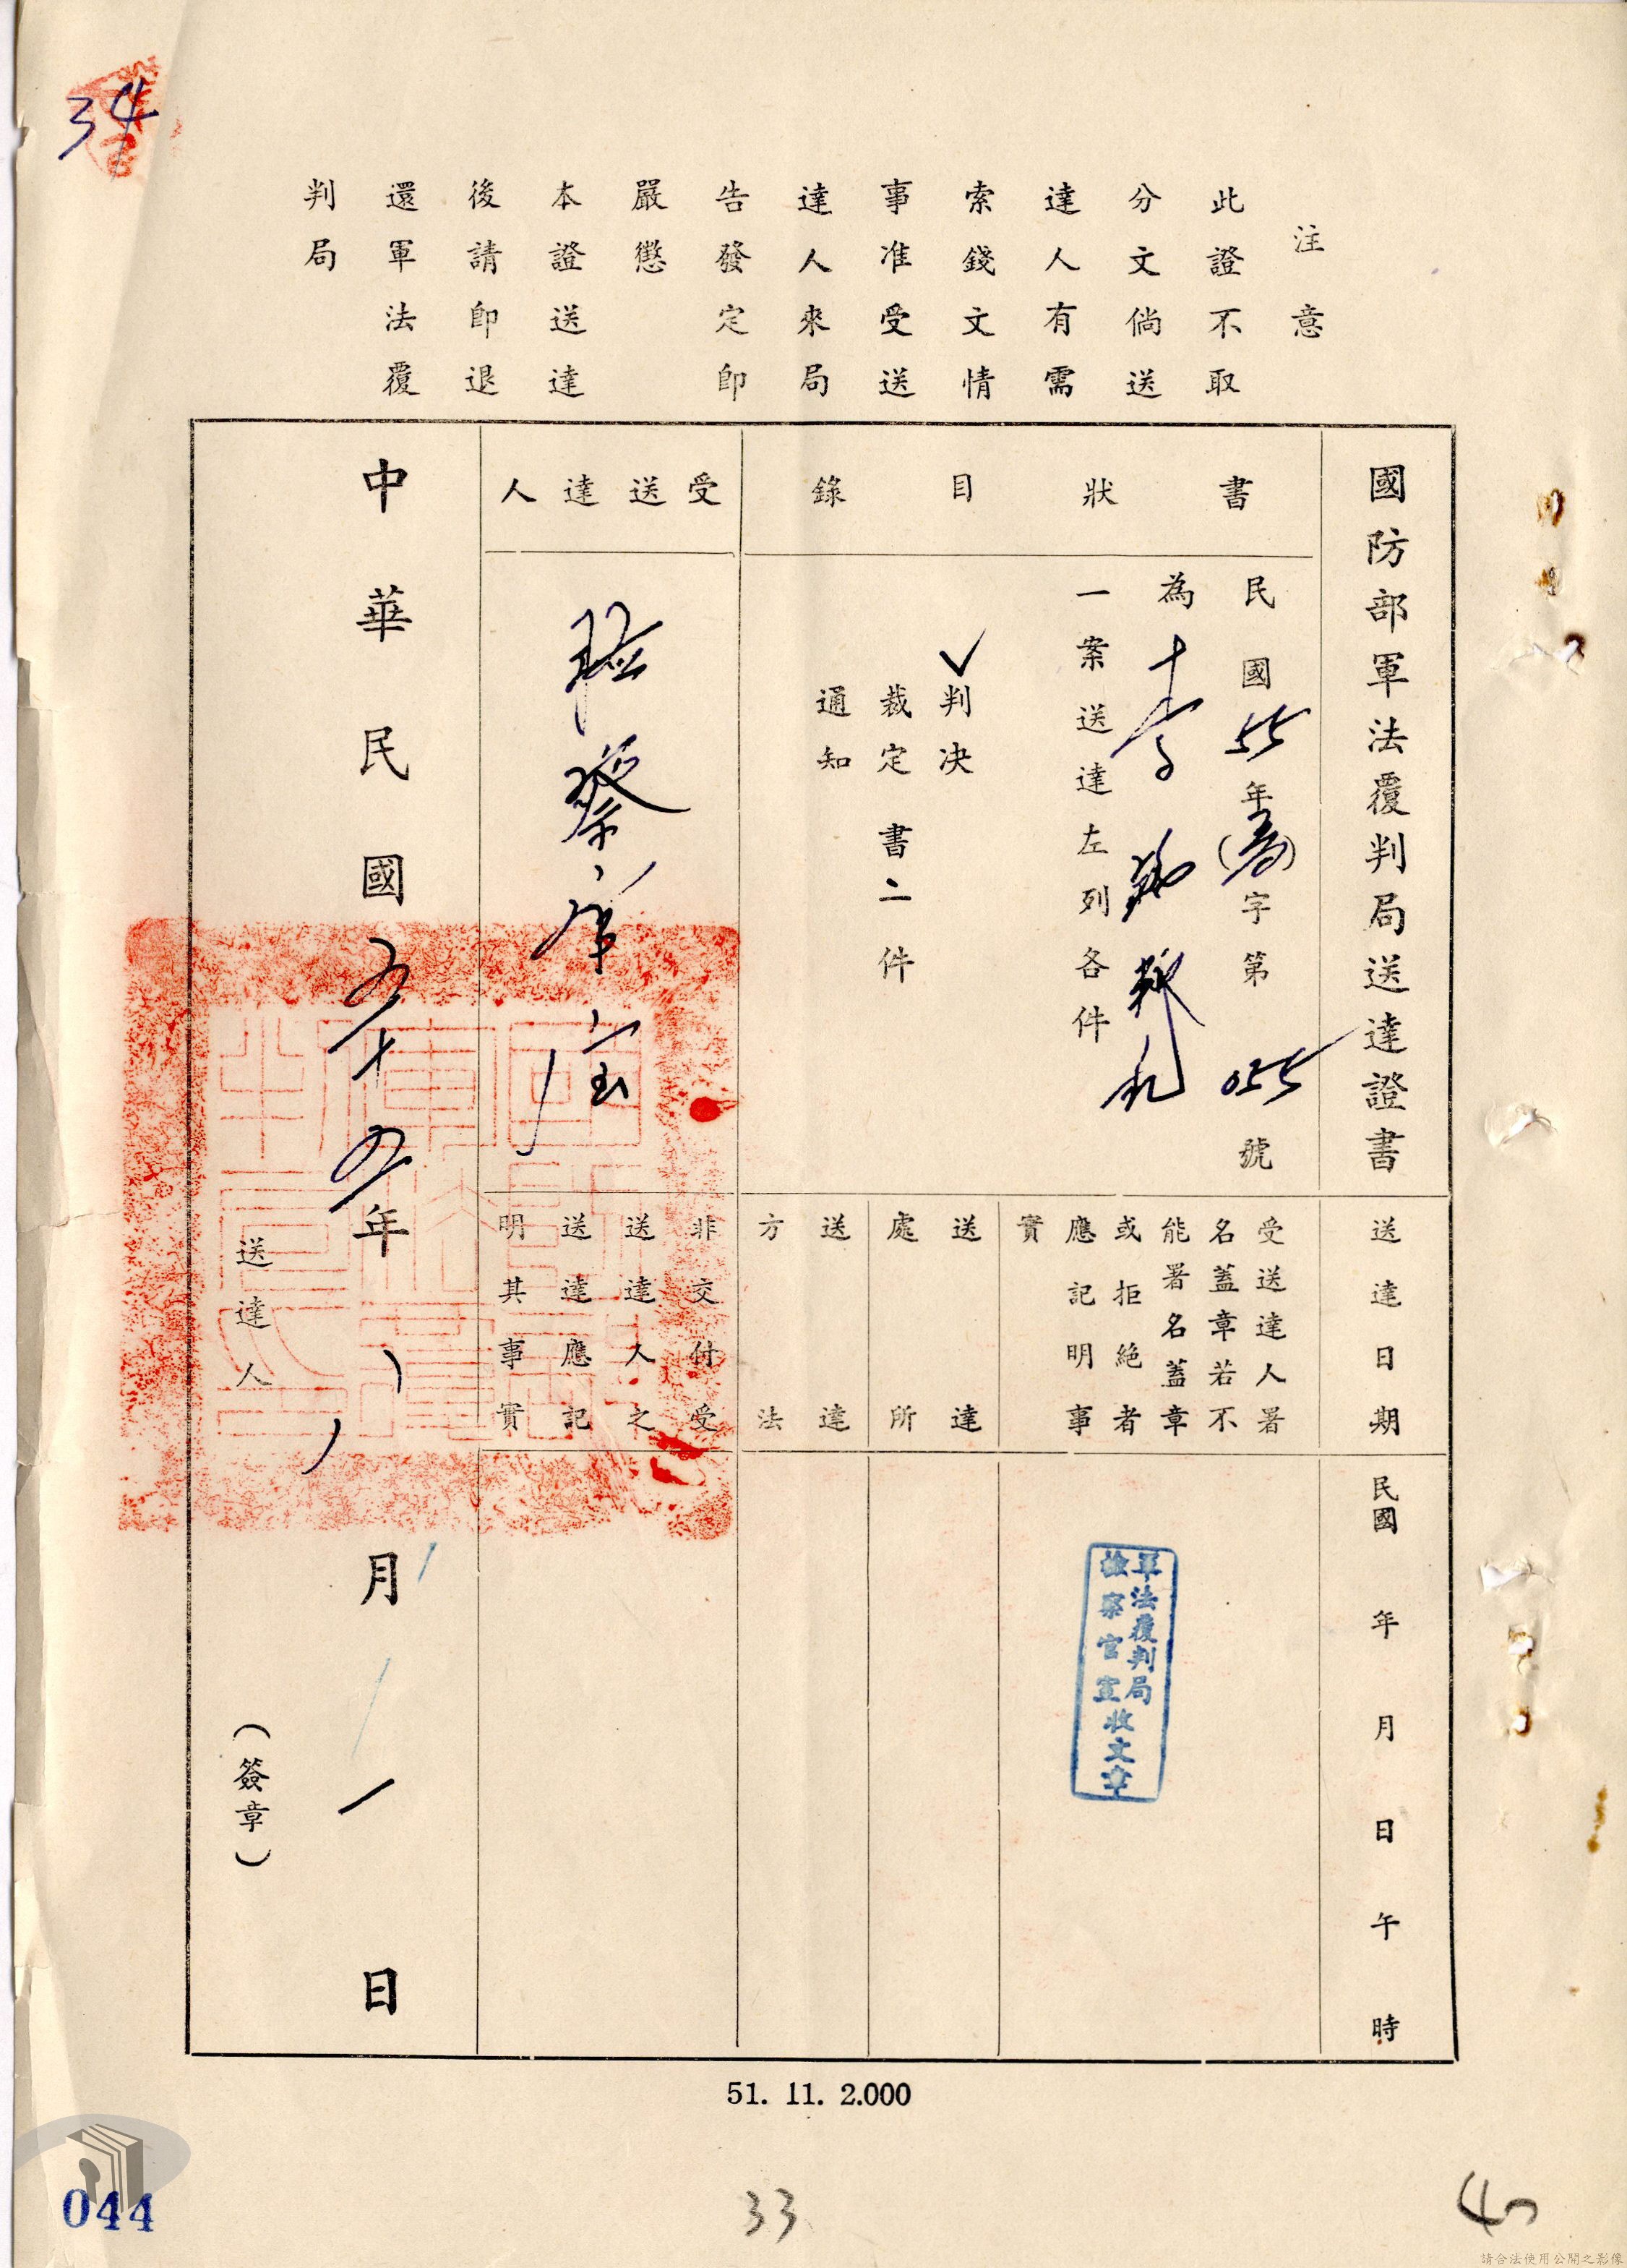 34
注意
此證不取
分文倘送
達人有需
索錢文情
事准受送
達人來局
告發定即
嚴懲
本證送達
後請即退
還軍法覆
判局
國防部軍法覆判局送達證書
書狀目錄
民國55年(高)字第055號
為李
一案送達左列各件
✓判決
裁定書二件
通知
受送達人
檢察官室
送達日期
民國 年 月 日 午 時
受送達人署
名蓋章若不
能署名蓋章
或拒絶者
應記明事
實
軍法覆判局
檢察官室收文章
送達
處所
送達
方法
非交付受
送達人之
送達應記
明其事實
中華民國五十四年 月 日
送達人
(簽章)
51. 11. 2.000
044
33
請合法使用公開之影像